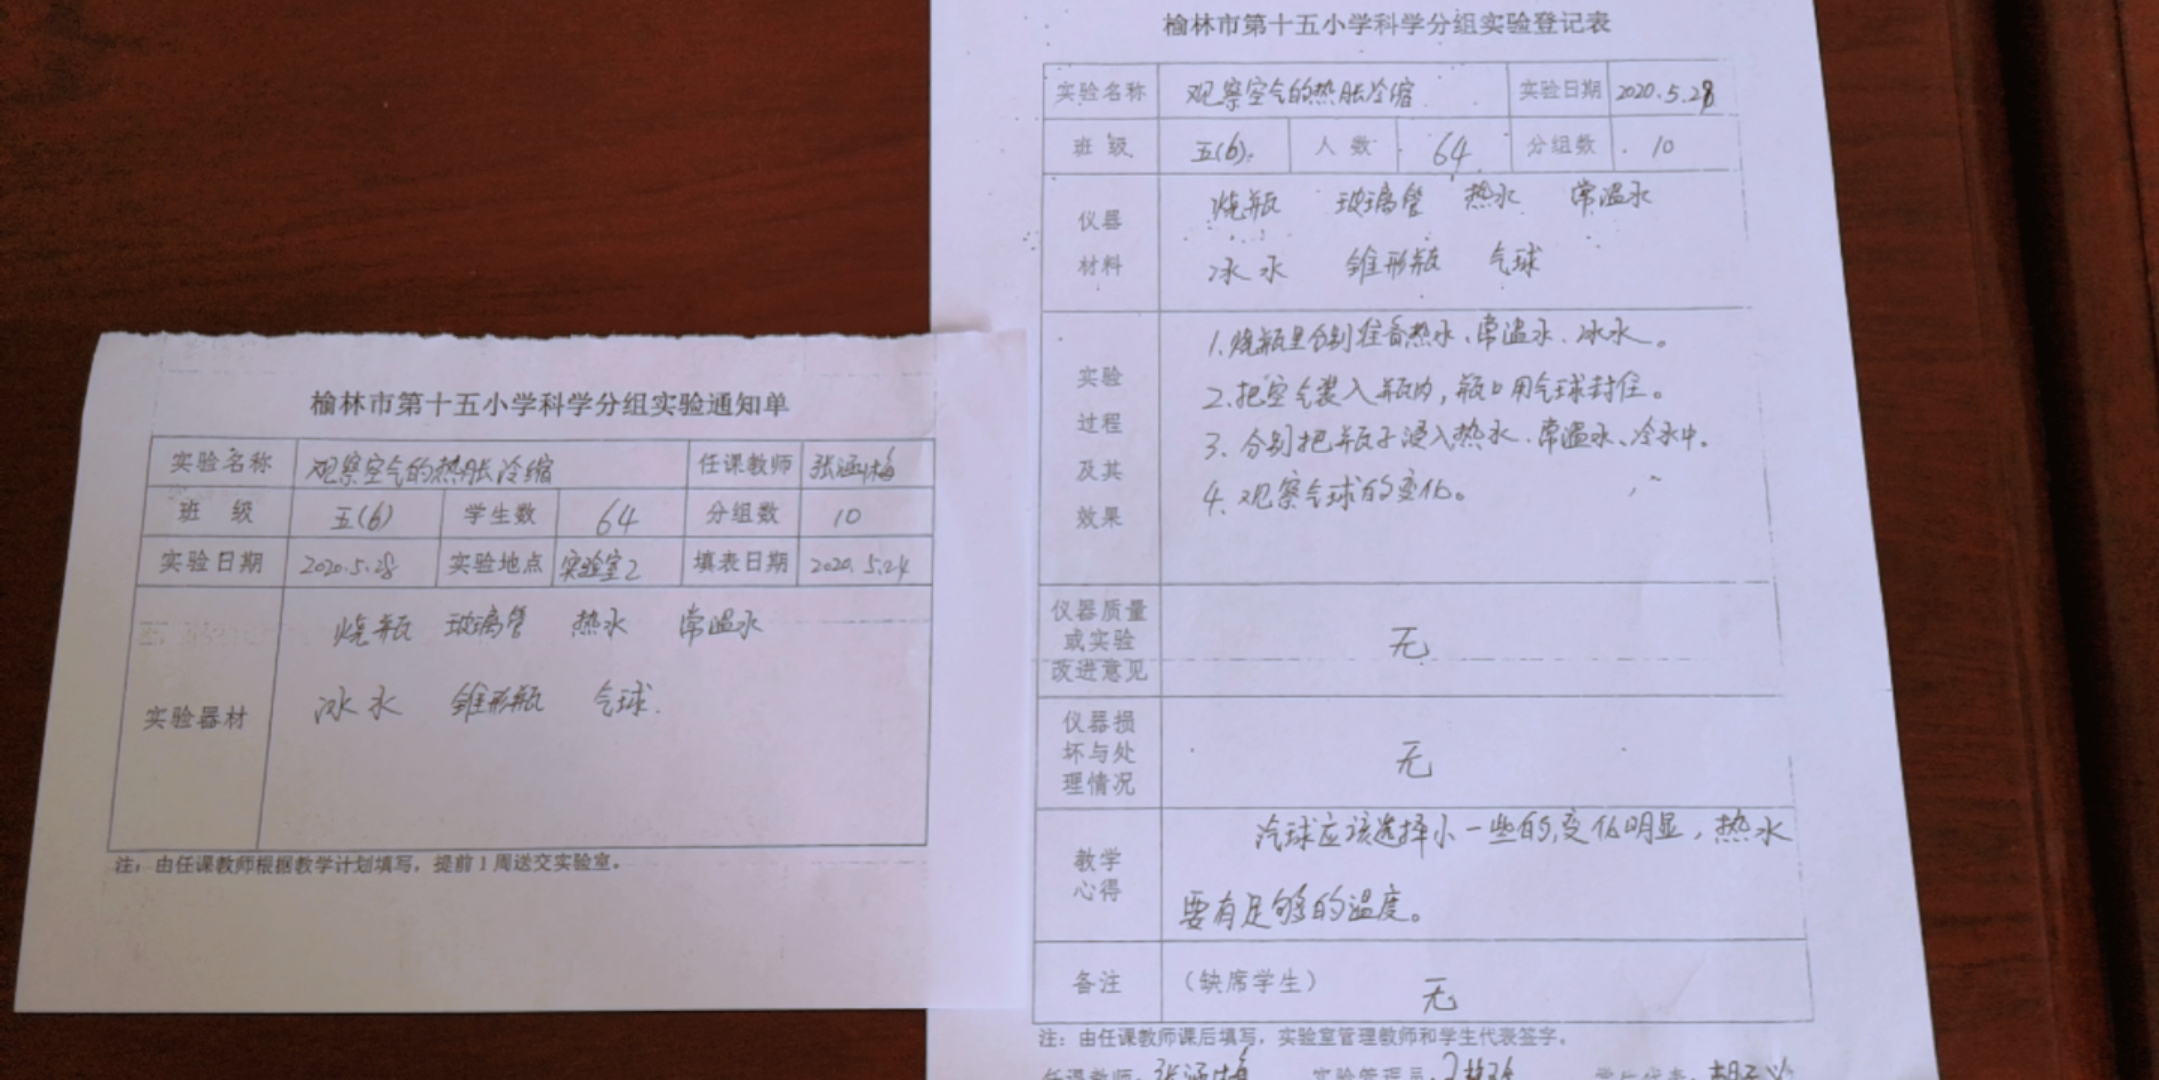 榆林市第十五小学科学分组实验通知单
实验名称 观察空气的热胀冷缩 任课教师 张涵梅
班 级 五(6) 学生数 64 分组数 10
实验日期 2020.5.28 实验地点 实验室2 填表日期 2020.5.24
烧瓶 玻璃管 热水 常温水
冰水 锥形瓶 气球.
实验器材
注:由任课教师根据教学计划填写,提前1周送交实验室。
榆林市第十五小学科学分组实验登记表
实验名称 观察空气的热胀冷缩 实验日期 2020.5.28
班 级 五(6). 人 数 64 分组数 10
仪器
材料
烧瓶 玻璃管 热水 常温水
冰水 锥形瓶 气球
实验
过程
及其
效果
1.烧瓶里分别准备热水、常温水、冰水。
2.把空气装入瓶内,瓶口用气球封住。
3.分别把瓶子浸入热水、常温水、冷水中.
4.观察气球的变化。
仪器质量
或实验
改进意见
无
仪器损
坏与处
理情况
无
教学
心得
汽球应该选择小一些的,变化明显,热水
要有足够的温度。
备注 (缺席学生) 无
注:由任课教师课后填写,实验室管理教师和学生代表签字。
任课教师:张涵梅 实验管理员: 学生代表: